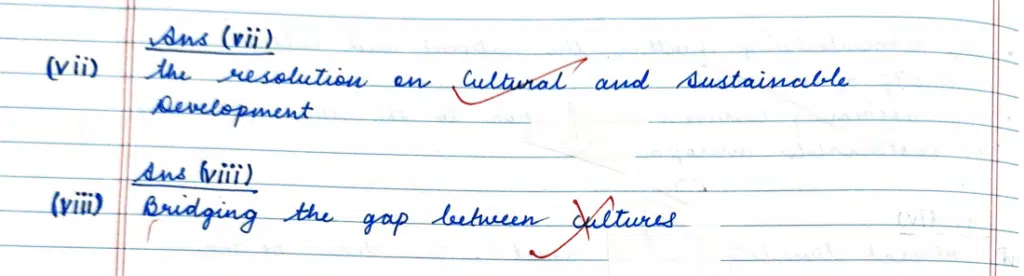 Ans (vii)
(vii) the resolution on Cultural and Sustainable
Development
Ans (viii)
(viii) Bridging the gap between cultures